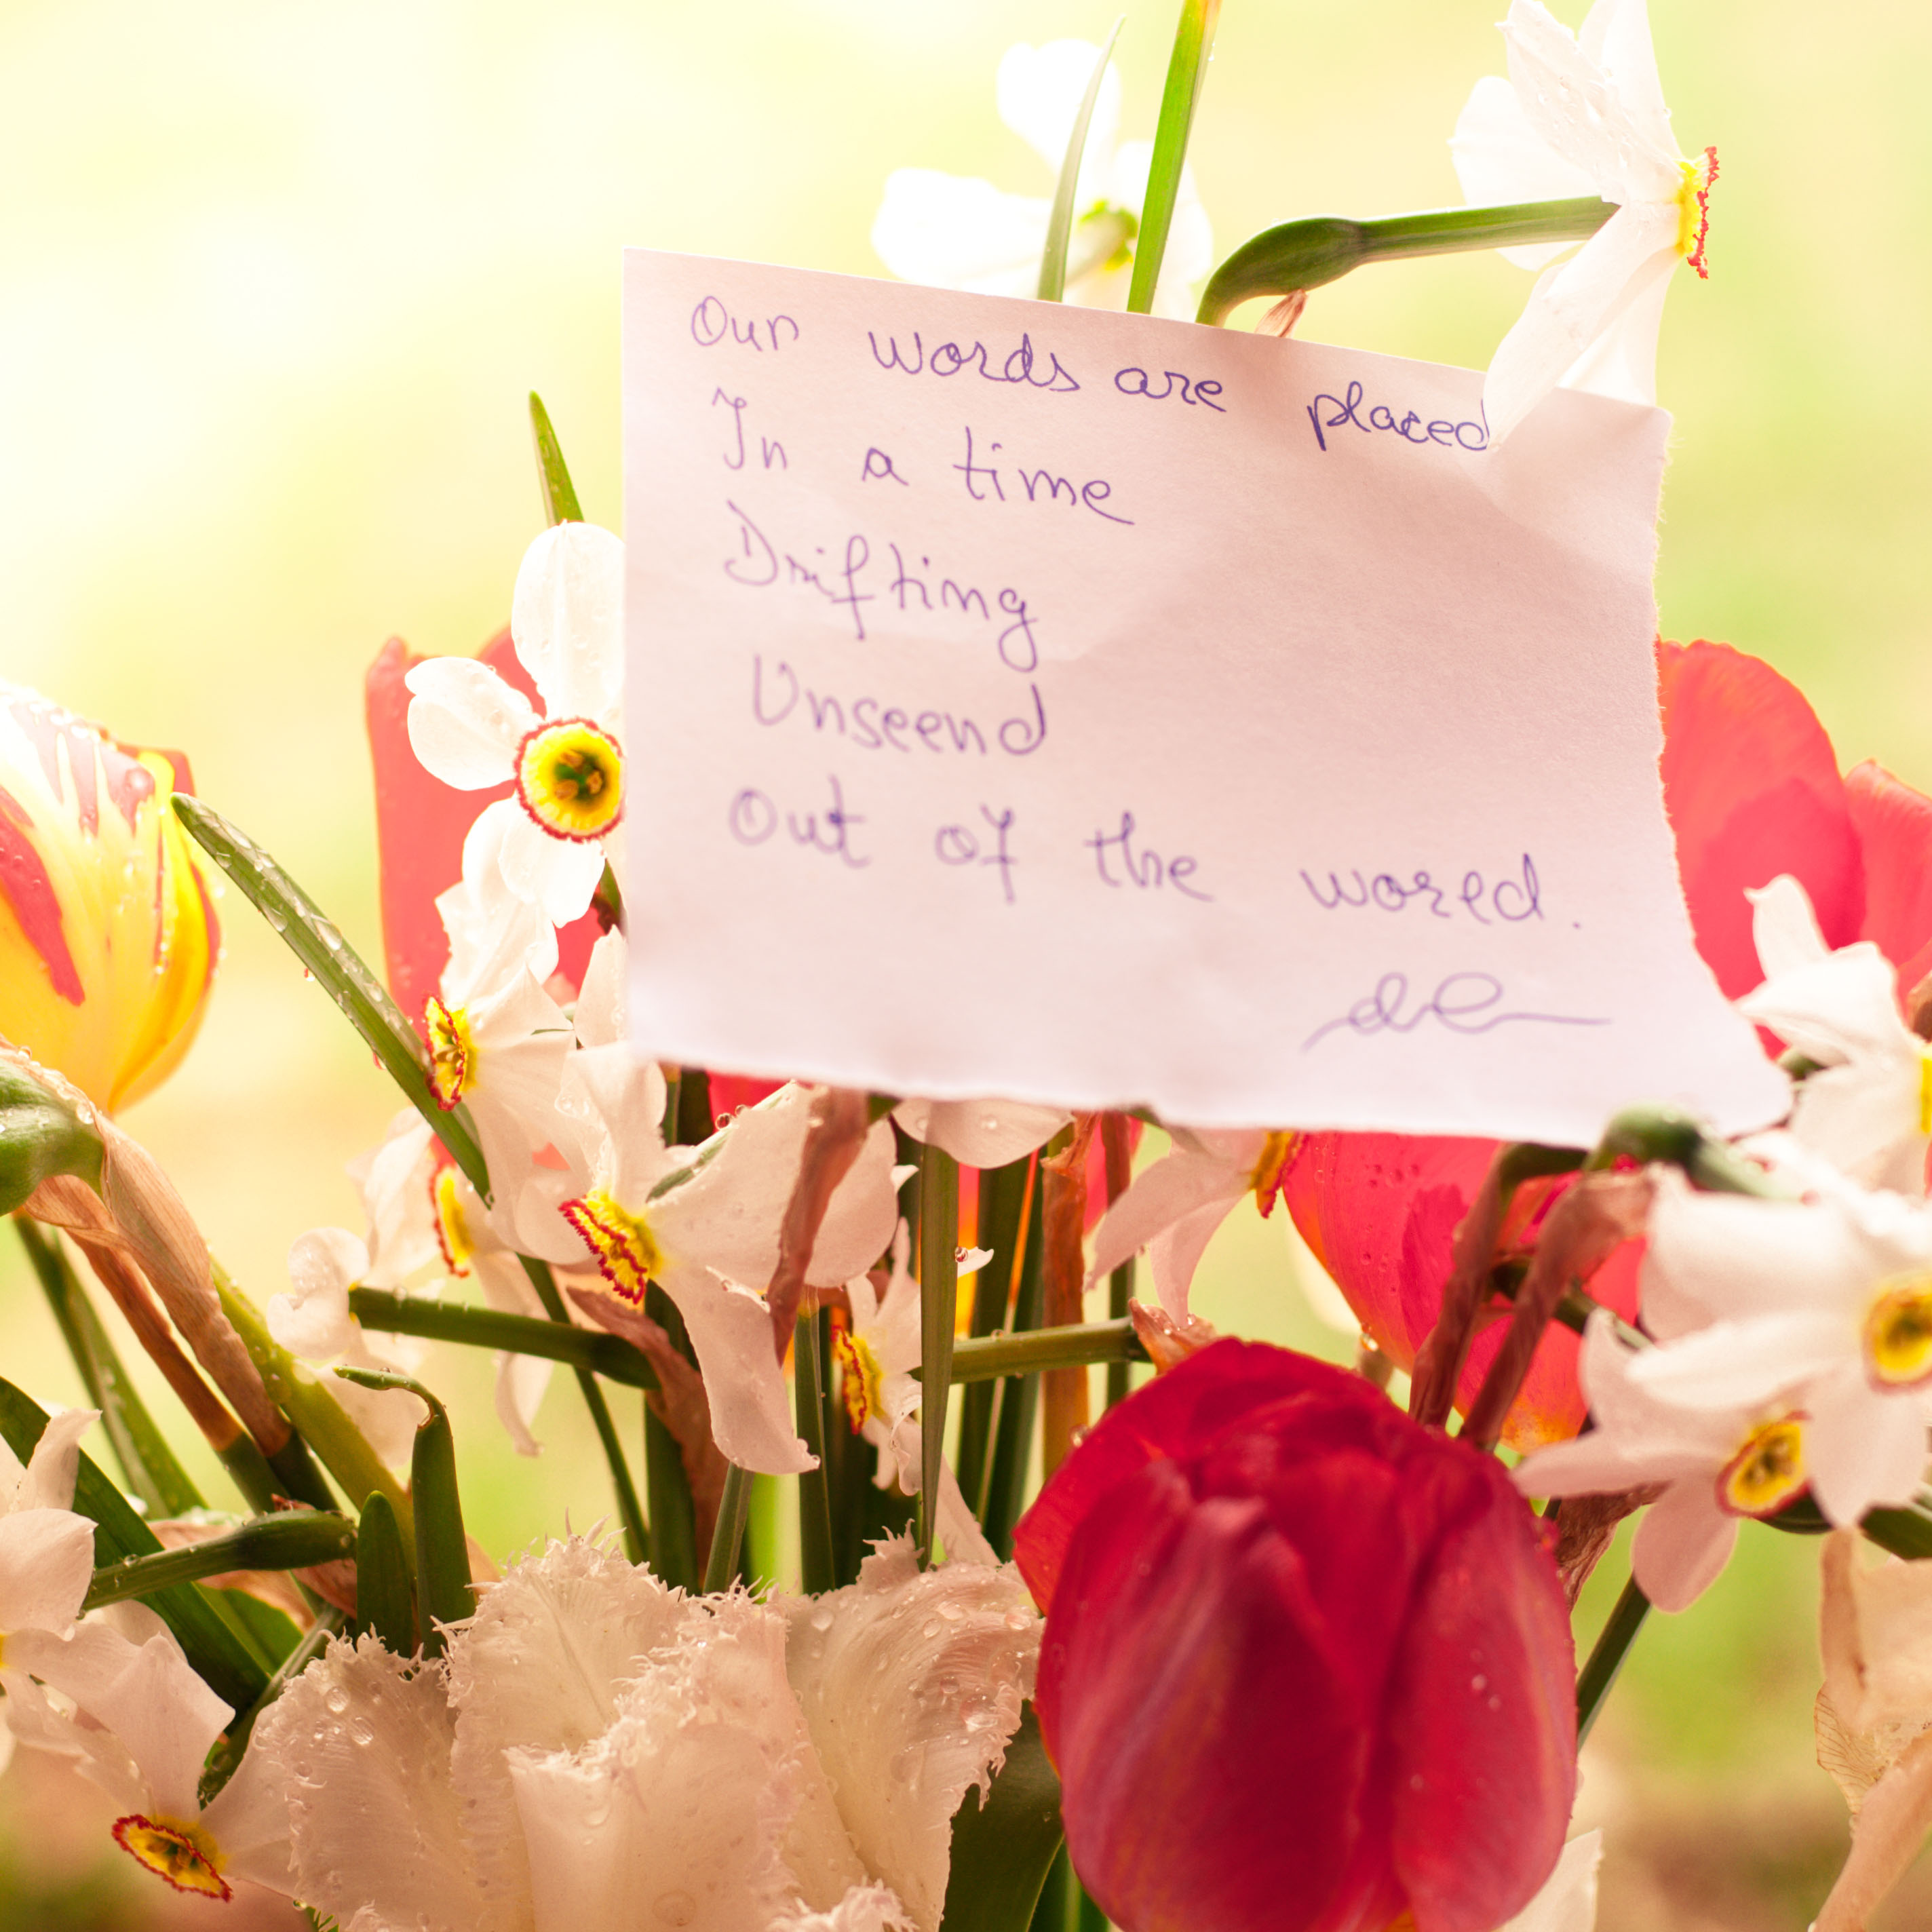 Our words are placed
In a time
Drifting
Unseend
Out of the wored.